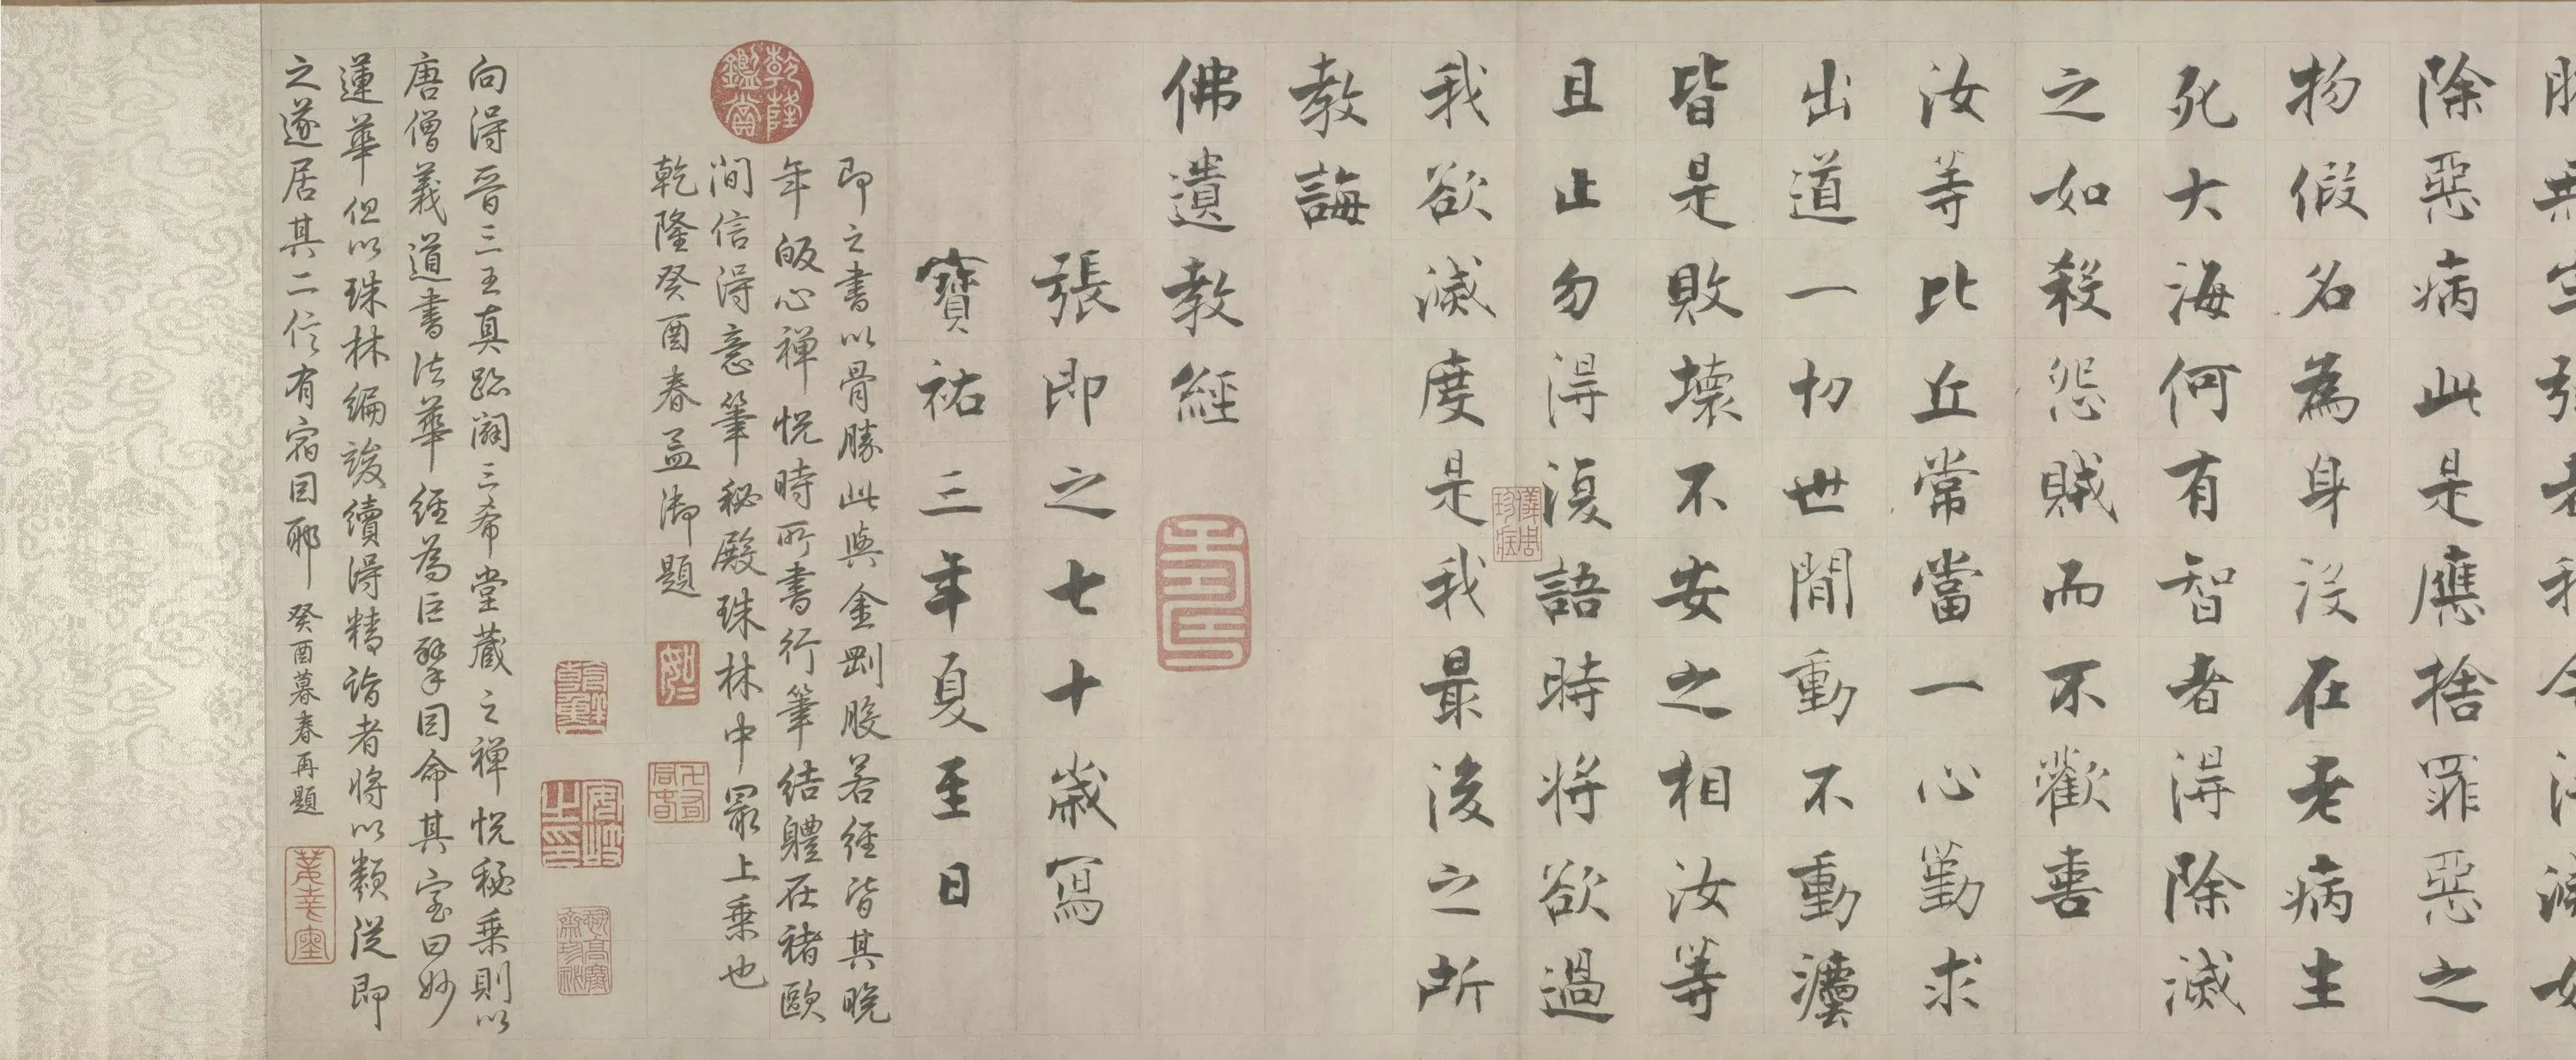 除惡病此是應捨罪惡之
物假名為身沒在老病生
死大海何有智者得除滅
之如殺怨賊而不歡喜
汝等比丘常當一心勤求
出道一切世間動不動灋
皆是敗壞不安之相汝等
且止勿得復語時將欲過
我欲滅度是我最後之所
教誨
佛遺教經
張即之七十歲寫
寶祐三年夏至日
即之書以骨勝此與金剛般若經皆其晚
年皈心禅悦時所書行筆結體在褚歐
間信得意筆秘殿珠林中冣上乘也
乾隆癸酉春孟御題
乾隆鑑賞
向得晉三王真跡闢三希堂蔵之禅悦秘乗則以
唐僧義道書法華經為巨擘因命其室曰妙
蓮華但以珠林編竣續得精詣者將以類從即
之遂居其二信有宿因耶 癸酉暮春再題